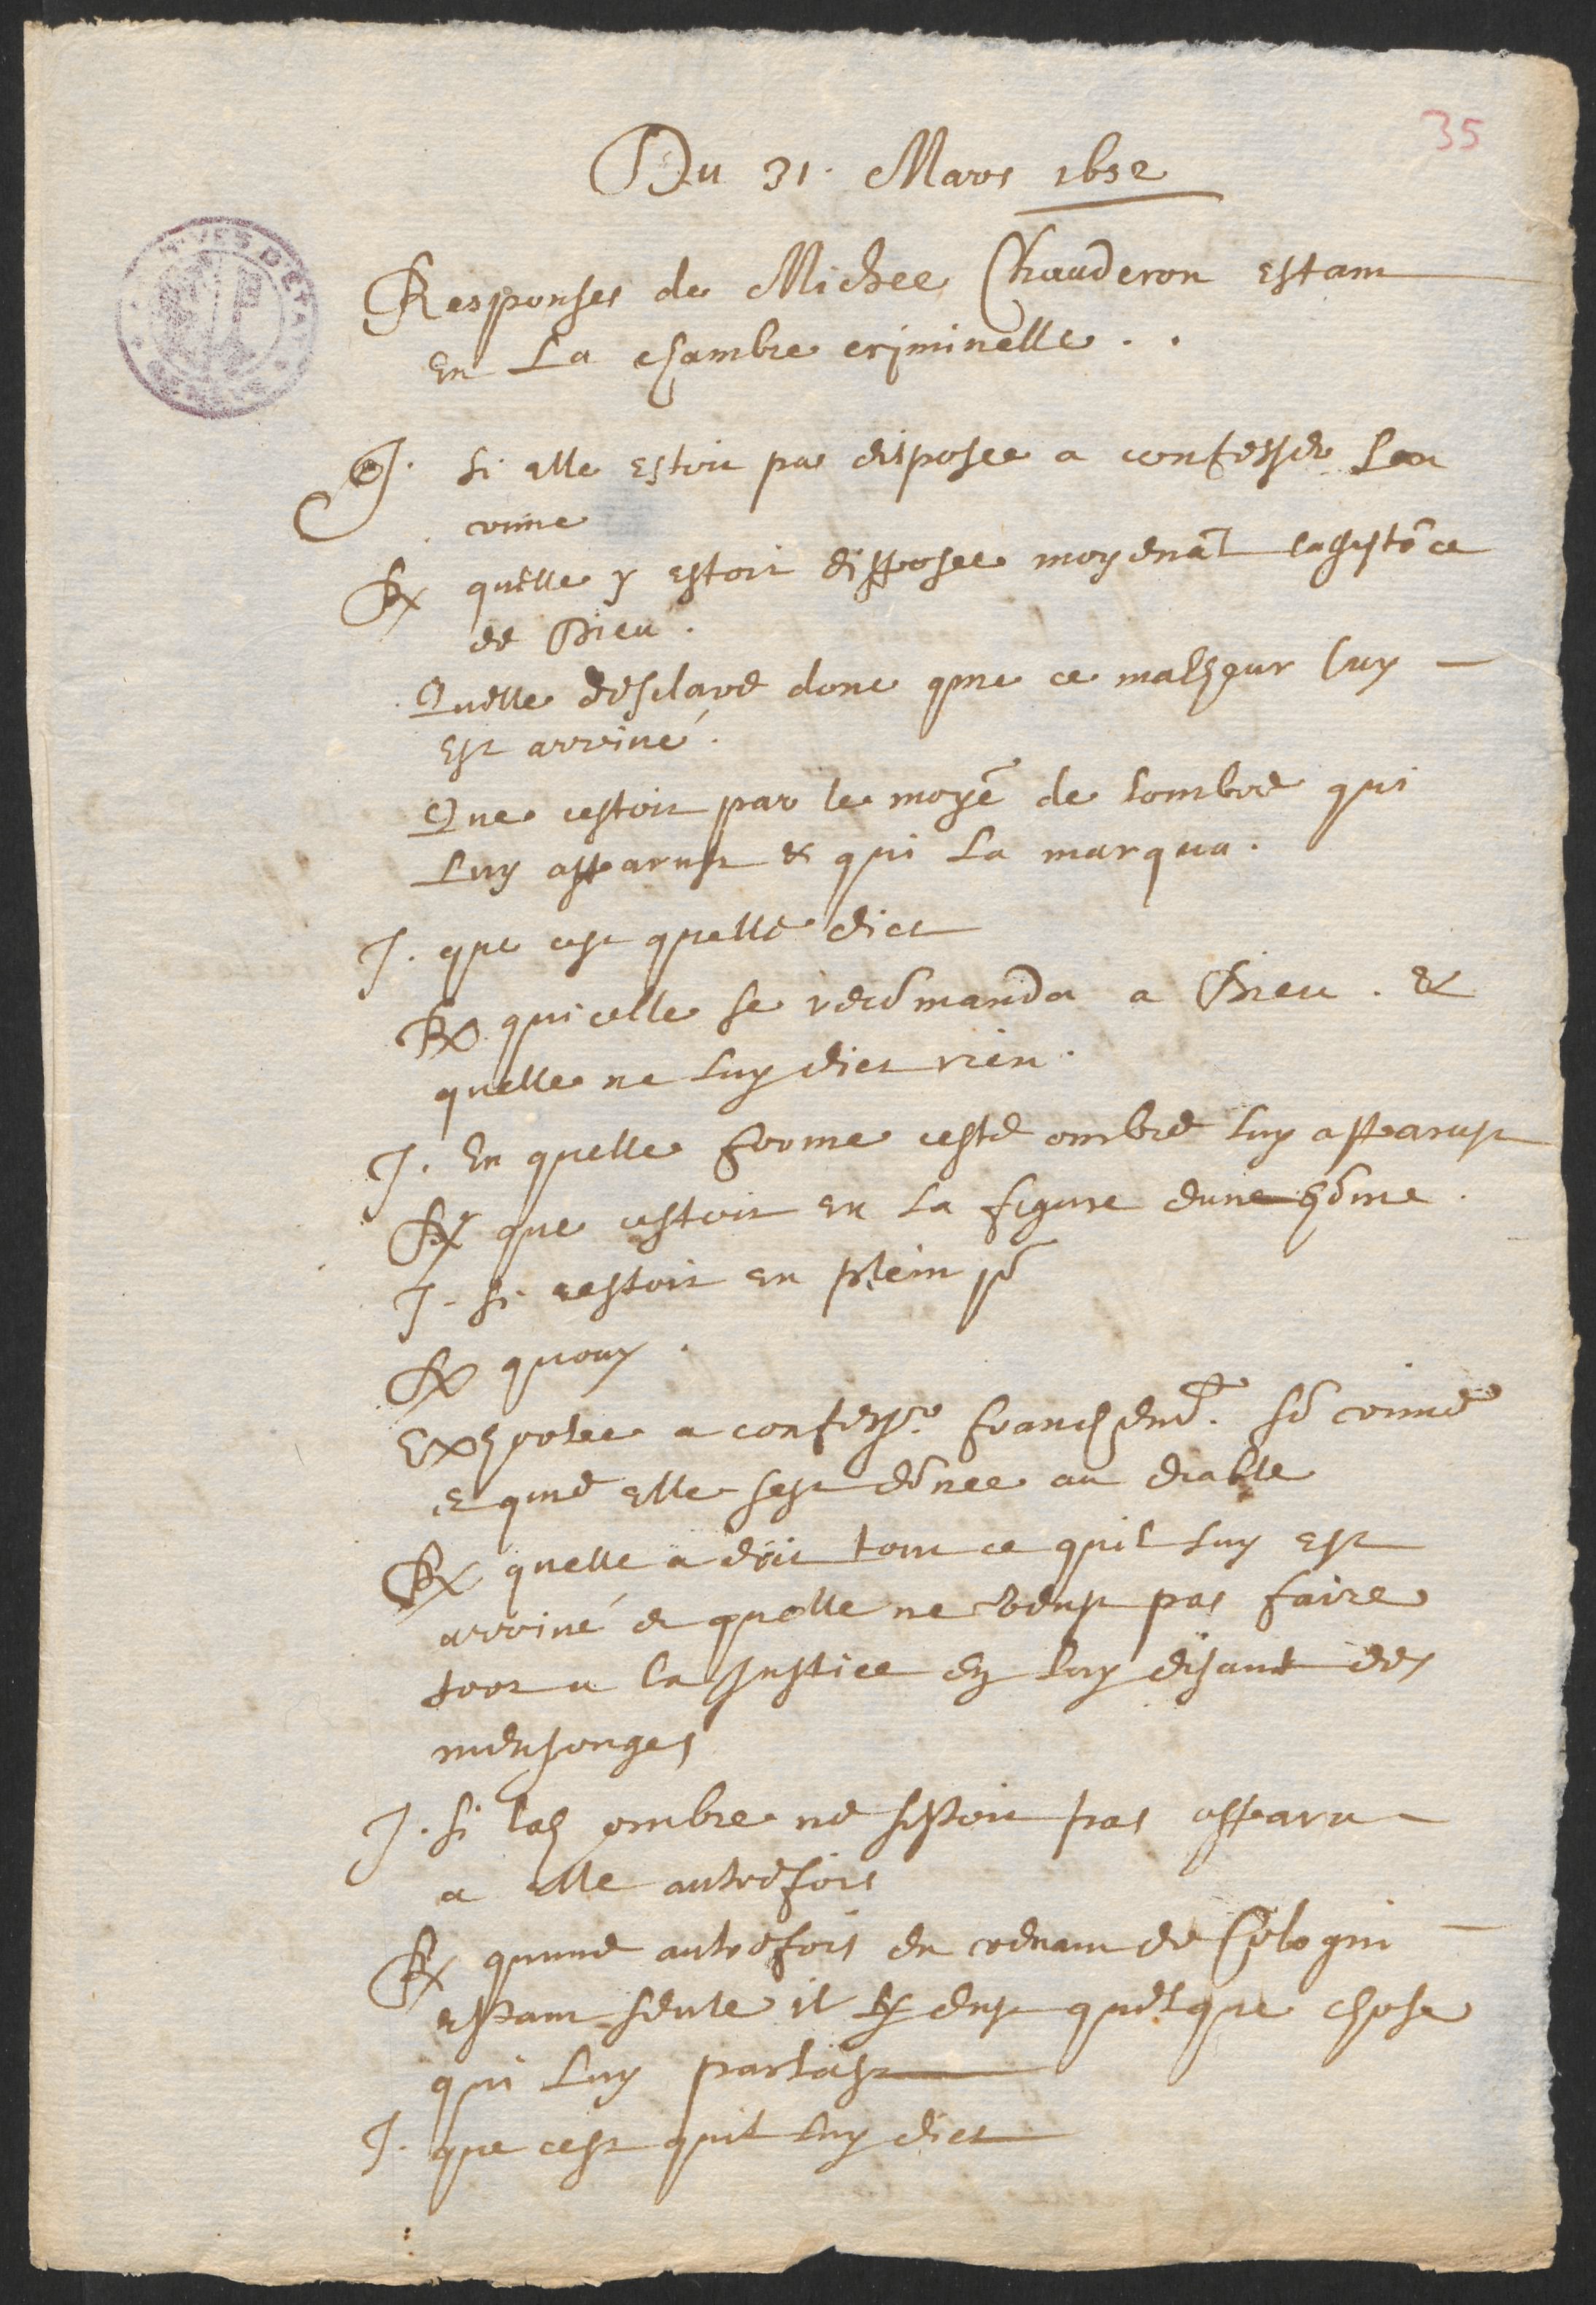 35
Du 31. Mars 1652
Responses de Michee Chauderon estant
en la chambre criminelle..
J. si elle estoit pas disposee a confesser son
crime
Rx quelle y estoit disposee moyenāt lassistāce
de Dieu.
Quelle desclare donc que ce malheur luy
est arrivé.
Que cestoit par le moyē de lombre qui
luy apparust & qui la marqua.
J. que cest quelle dict
Rx quicelle se recōmanda a Dieu. &
quelle ne luy dict rien.
J. En quelle forme ceste ombre luy apparust
Rx que cestoit en la figure dune hōme.
J. si cestoit en plein jō
Rx quouy.
Exhortee a confessr franchemt. sō crime
& que elle sest dōnee au diable
Rx quelle a dict tout ce quil luy est
arrivé & quelle ne veust pas faire
tort a la Justice en luy disant des
mensonges
J. si lad ombre ne sestoit pas apparu
a elle autrefois
Rx quune autrefois en venant de Cologni
estant seule il y eust quelque chose
qui luy parlast
J. que cest quil luy dict
ARCHIVES D'ETAT GENEVE